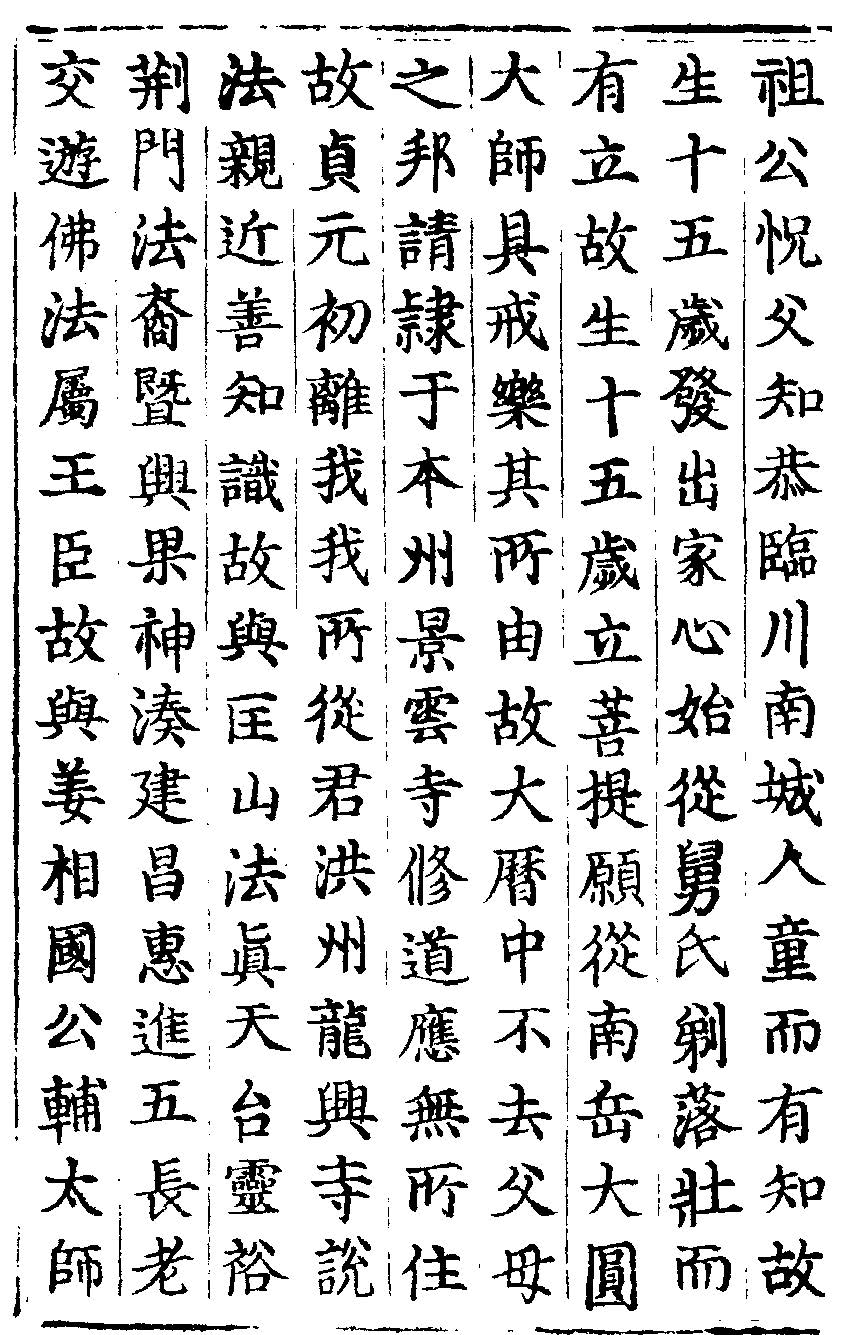 祖公悅父知恭臨川南城人童而有知故
生十五歲發出家心始從舅氏剃落壯而
有立故生十五歲立菩提願從南岳大圓
大師具戒樂其所由故大曆中不去父母
之邦請隷于本州景雲寺修道應無所住
故貞元初離我我所從君洪州龍興寺說
法親近善知識故與匡山法眞天台靈裕
荆門法裔暨興果神湊建昌惠進五長老
交遊佛法屬王臣故與姜相國公輔太師